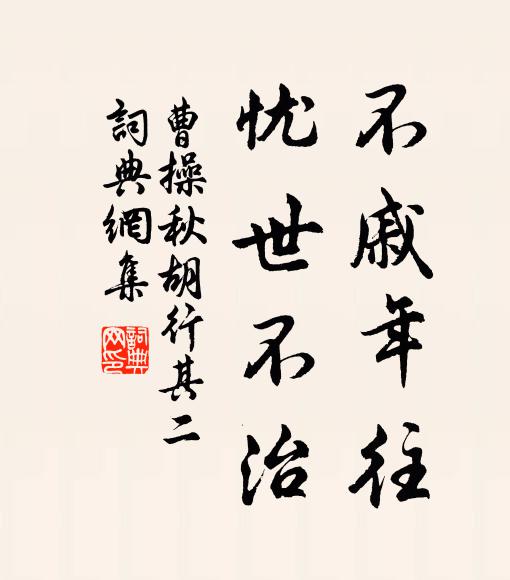 不戚年往
忧世不治
曹操秋胡行其二
詞典網集
詞典
网印